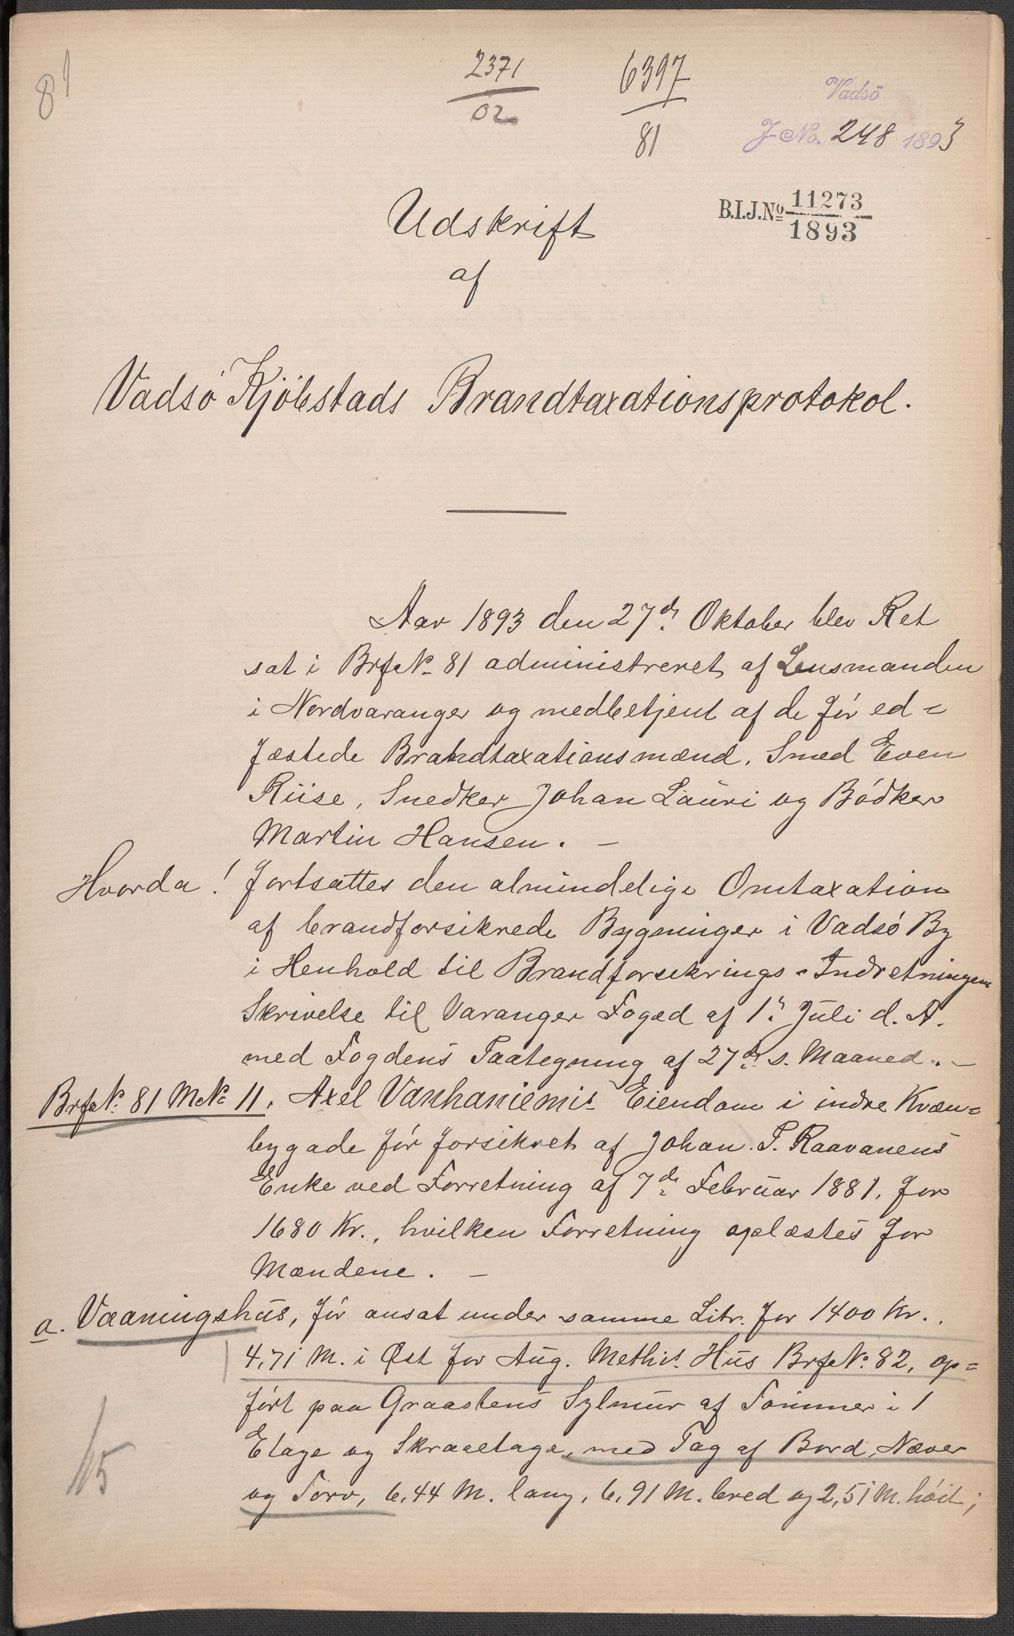 81
2371
02
6397
81
Vadsö
J No. 248 1893
B.I.J.No 11273
1893
Udskrift
af
Vadsö Kjöbstads Brandtaxationsprotokol.
Aar 1893 den 27de Oktober blev Ret
sat i BrfcNo 81 administreret af Lensmanden
i Nordvaranger og medbetjent af de før ed=
fæstede Brandtaxationsmænd, Smed Even
Riise, Snedker Johan Lauri og Bødker
Martin Hansen. –
Hvorda! fortsattes den almindelige Omtaxation
af brandforsikrede Bygninger i Vadsø By
i Henhold til Brandforsikrings-Indretningens
Skrivelse til Varanger Foged af 1ste Juli d. A.
med Fogdens Paategning af 27de s. Maaned. –
BrfcNo 81 MNo 11. Axel Vanhaniemis Eiendom i indre Kvæn=
bygade før forsikret af Johan P. Raavanens
Enke ved Forretning af 7de Februar 1881, for
1680 Kr., hvilken Forretning oplæstes for
Mændene. –
a. Vaaningshus, før ansat under samme Litr. for 1400 Kr.
4,71 M. i Øst for Aug. Methis Hus BrfcNo 82, op=
ført paa Graastens Sylmur af Tømmer i 1
Etage og Skraaetage, med Tag af Bord, Næver
og Torv, 6,44 M. lang, 6,91 M. bred og 2,51 M. høit;